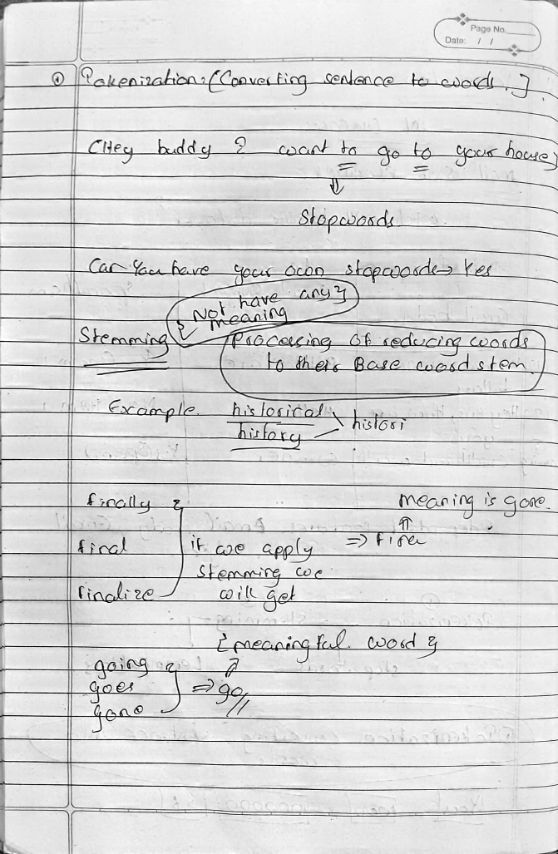 Page No.
Date: / /
① Tokenization: [Converting sentence to words.]
{Hey buddy I want to go to your house}
⇓
Stopwords
Can You have your own stopwords → Yes
{Not have any}
meaning
Stemming
Processing of reducing words
to their Base word stem.
Example. historical
history
histori
finally
final
finalize
if we apply
Stemming we
will get
meaning is gone.
⇑
⇒ Fina
{meaningful word}
going
goes
gone
⇒ go//